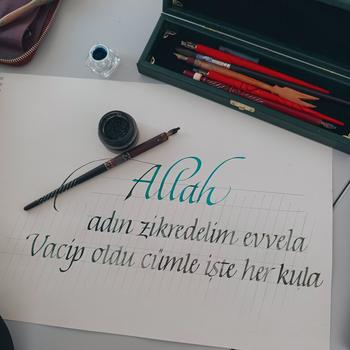 Allah
adın zikredelim evvela
Vacip oldu cümle işte her kula